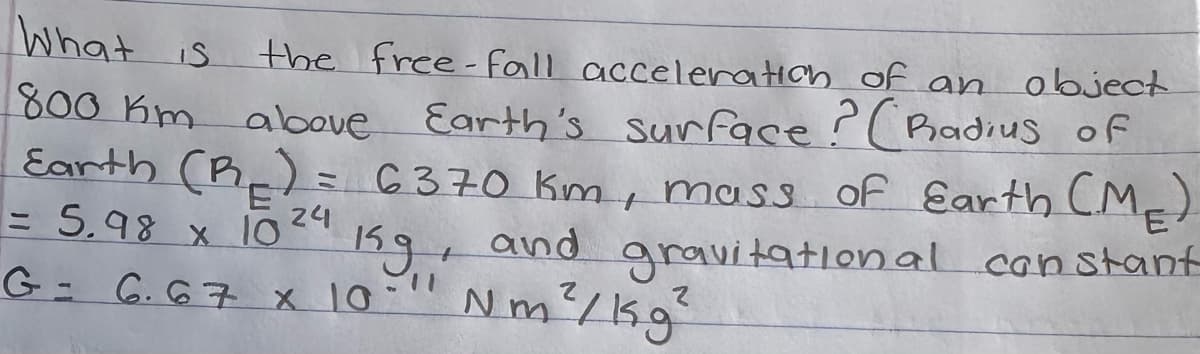 What is the free-fall acceleration of an object
800 Km above Earth's surface? (Radius of
Earth (R_E) = 6370 Km, mass of Earth (M_E)
= 5.98 x 10²⁴ Kg, and gravitational constant
G = 6.67 x 10⁻¹¹ Nm²/Kg²